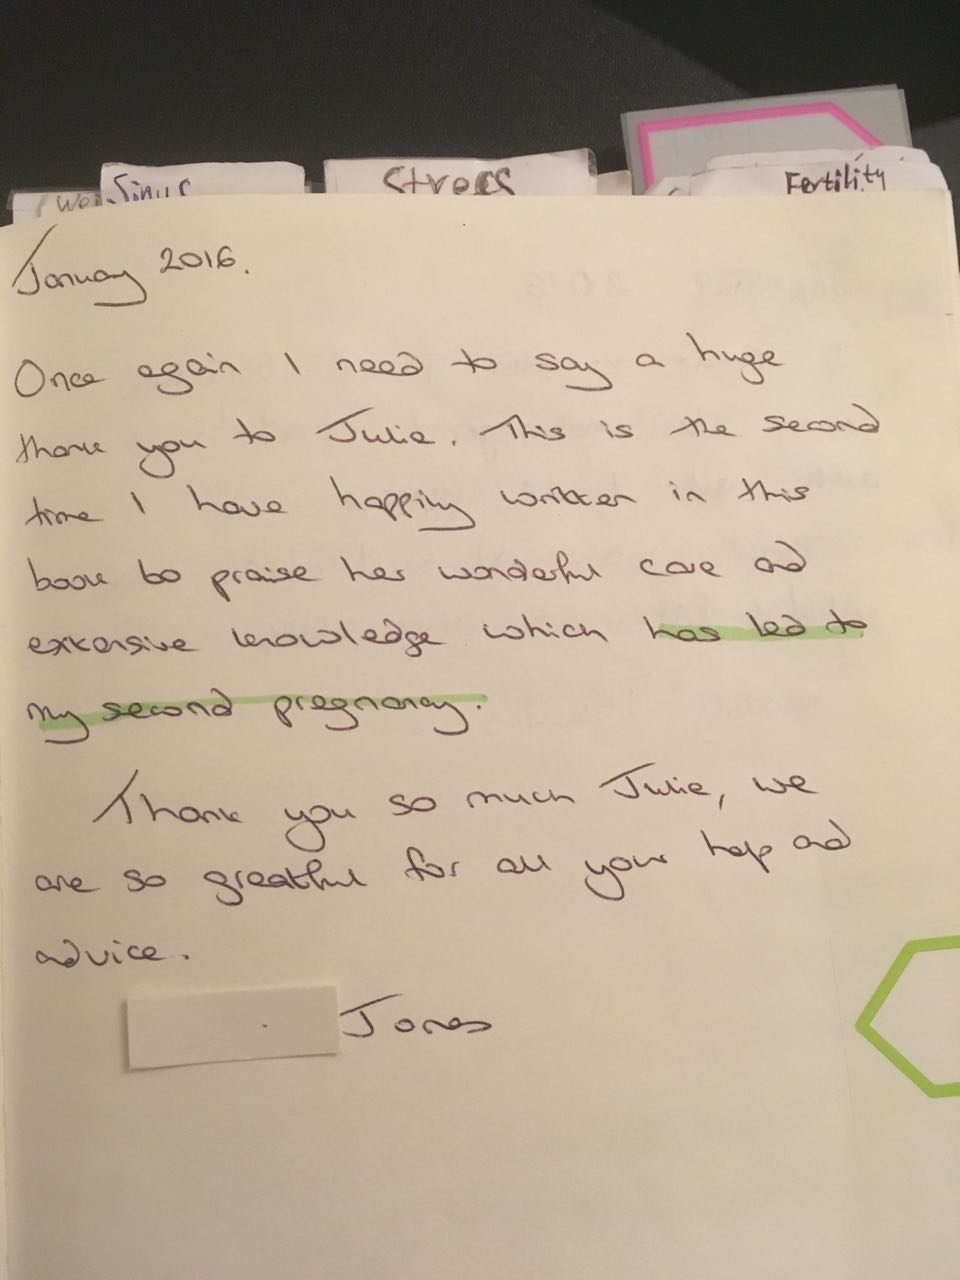 Sinus
Stress
Fertility
January 2016.
Once again I need to say a huge
thank you to Julie. This is the second
time I have happily written in this
book to praise her wonderful care and
extensive knowledge which has led to
my second pregnancy.
Thank you so much Julie, we
are so greatful for all your help and
advice.
Jones